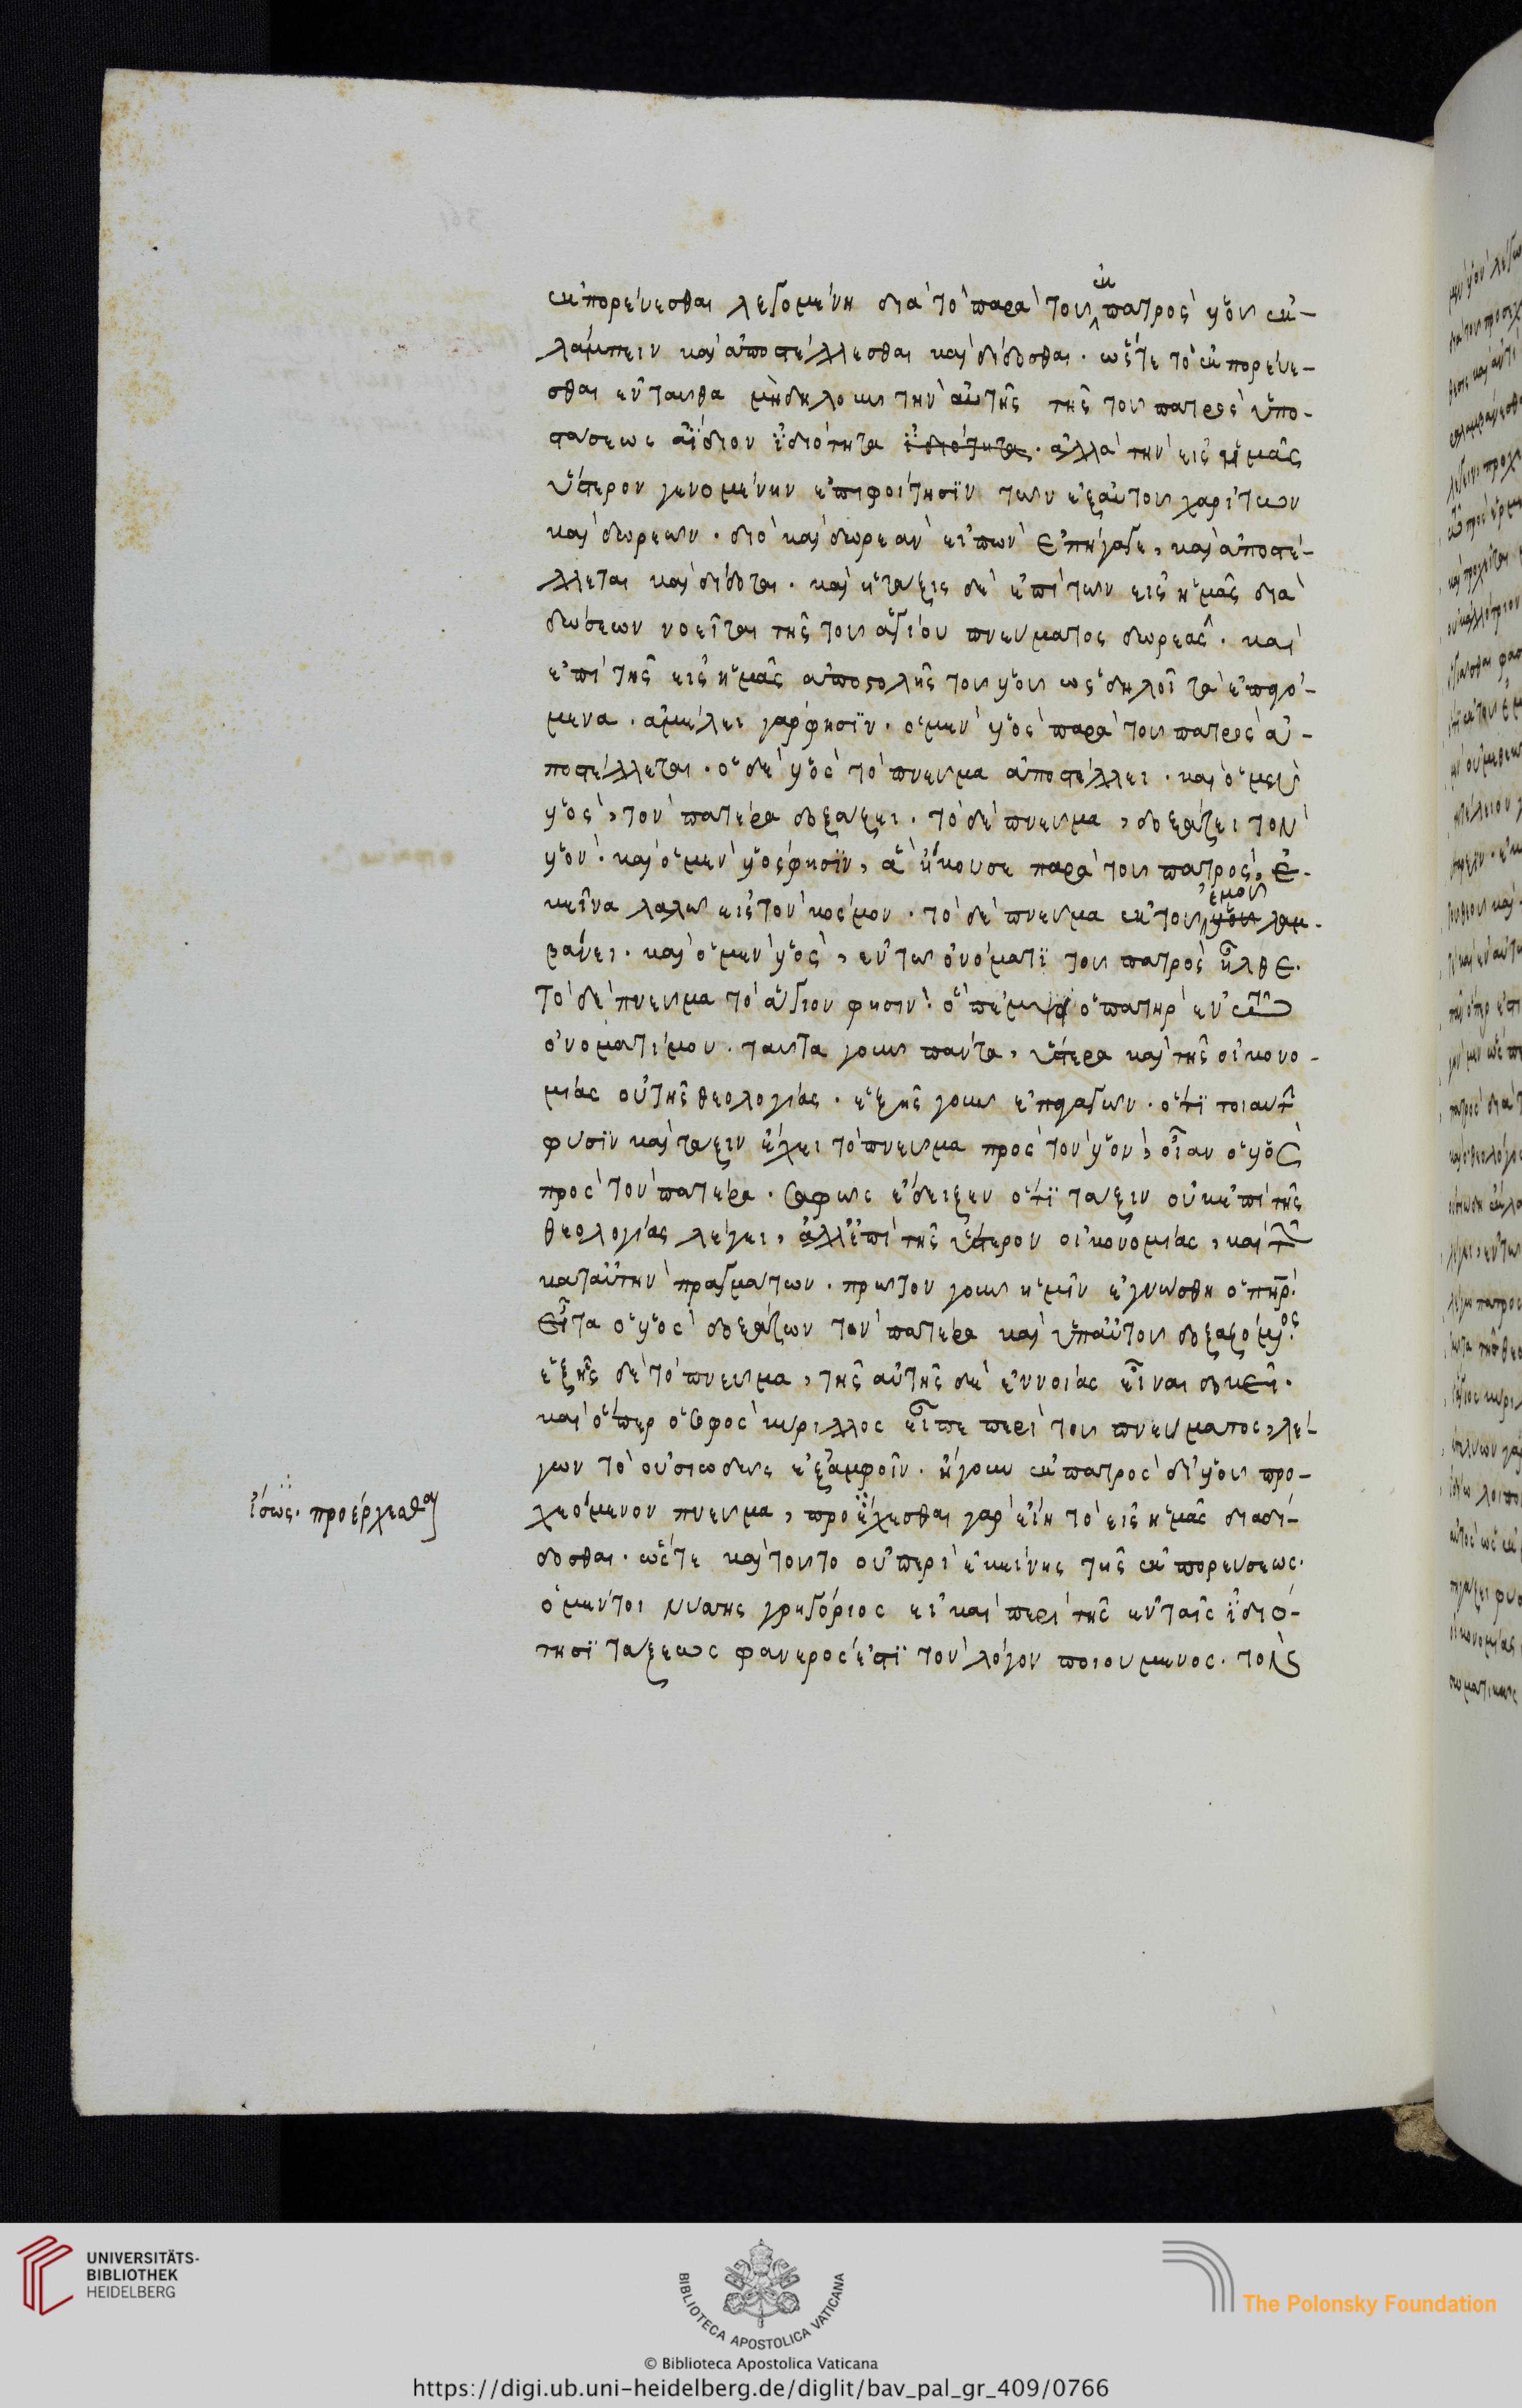 ἐκπορεύεσθαι λεγομένη διὰ τὸ παρὰ τοῦ ἐκ πατρὸς υἱοῦ ἐκ-
λάμπειν καὶ ἀποστέλλεσθαι καὶ δίδοσθαι. ὥστε τὸ ἐκπορεύε-
σθαι ἐνταῦθα μὴ δηλοῦν τὴν αὐτῆς τῆς τοῦ πατρὸς ὑπο-
στάσεως ἀΐδιον ἰδιότητα ἰδιότητα. ἀλλὰ τὴν εἰς ἡμᾶς
ὕστερον γενομένην ἐπιφοίτησιν τῶν ἐξ αὐτοῦ χαρίτων
καὶ δωρεῶν. διὸ καὶ δωρεὰν εἰπὼν ἐπήγαγε, καὶ ἀποστέ-
λλεται καὶ δίδοται. καὶ ἡ τάξις δὲ ἐπὶ τῶν εἰς ἡμᾶς δια
δώσεων νοεῖται τῆς τοῦ ἁγίου πνεύματος δωρεᾶς. καὶ
ἐπὶ τῆς εἰς ἡμᾶς ἀποστολῆς τοῦ υἱοῦ ὡς δηλοῖ τὰ ἐπαγό-
μενα. ἀμέλει γάρ φησιν. ὁ μὲν υἱὸς παρὰ τοῦ πατρὸς ἀ-
ποστέλλεται. ὁ δὲ υἱὸς τὸ πνεῦμα ἀποστέλλει. καὶ ὁ μὲν
υἱὸς, τὸν πατέρα δοξάζει. τὸ δὲ πνεῦμα, δοξάζει τὸν
υἱόν. καὶ ὁ μὲν υἱός φησιν, ἃ ἤκουσε παρὰ τοῦ πατρός, ἐ-
κεῖνα λαλῶ εἰς τὸν κόσμον. τὸ δὲ πνεῦμα ἐκ τοῦ ἐμοῦ υἱοῦ λαμ-
βάνει. καὶ ὁ μὲν υἱὸς, ἐν τῷ ὀνόματι τοῦ πατρὸς ἦλθε.
τὸ δὲ πνεῦμα τὸ ἅγιον φησὶν. ὃ πέμψει ὁ πατὴρ ἐν τῷ
ὀνόματί μου. ταῦτα γοῦν πάντα, ὕστερα καὶ τῆς οἰκονο-
μίας οὐ τῆς θεολογίας. ἑξῆς γοῦν ἐπαγαγὼν. ὅτι τοιαύτ
φύσιν καὶ τάξιν ἔχει τὸ πνεῦμα πρὸς τὸν υἱὸν, οἵαν ὁ υἱὸς
πρὸς τὸν πατέρα. σαφῶς ἔδειξεν ὅτι τάξιν οὐκ ἐπὶ τῆς
θεολογίας λέγει, ἀλλ' ἐπὶ τῆς ὕστερον οἰκονομίας, καὶ τῶν
κατ' αὐτὴν πραγμάτων. πρῶτον γοῦν ἡμῖν ἐγνώσθη ὁ πηρ.
εἶτα ὁ υἱὸς δοξάζων τὸν πατέρα καὶ ὑπ' αὐτοῦ δοξαζόμενος.
ἑξῆς δὲ τὸ πνεῦμα, τῆς αὐτῆς δὲ ἐννοίας εἶναι δοκεῖ.
καὶ ὅπερ ὁ σοφὸς κύριλλος εἶπε περὶ τοῦ πνεύματος, λέ-
γων τὸ οὐσιωδῶς ἐξ ἀμφοῖν. ἤγουν ἐκ πατρὸς δι' υἱοῦ προ-
χεόμενον πνεῦμα, προέχεσθαι γὰρ εἴη τὸ εἰς ἡμᾶς διαδί-
δοσθαι. ὥστε καὶ τοῦτο οὐ περὶ ἐκείνης τῆς ἐκπορεύσεως.
ὁ μέντοι νύσης γρηγόριος εἰ καὶ περὶ τῆς ἐν ταῖς ἰδιό-
τησι τάξεως φανερός ἐστι τὸν λόγον ποιούμενος. τοῖς
ἴσως. προέρχεσθαι
UNIVERSITÄTS-
BIBLIOTHEK
HEIDELBERG
BIBLIOTECA APOSTOLICA VATICANA
The Polonsky Foundation
© Biblioteca Apostolica Vaticana
https://digi.ub.uni-heidelberg.de/diglit/bav_pal_gr_409/0766